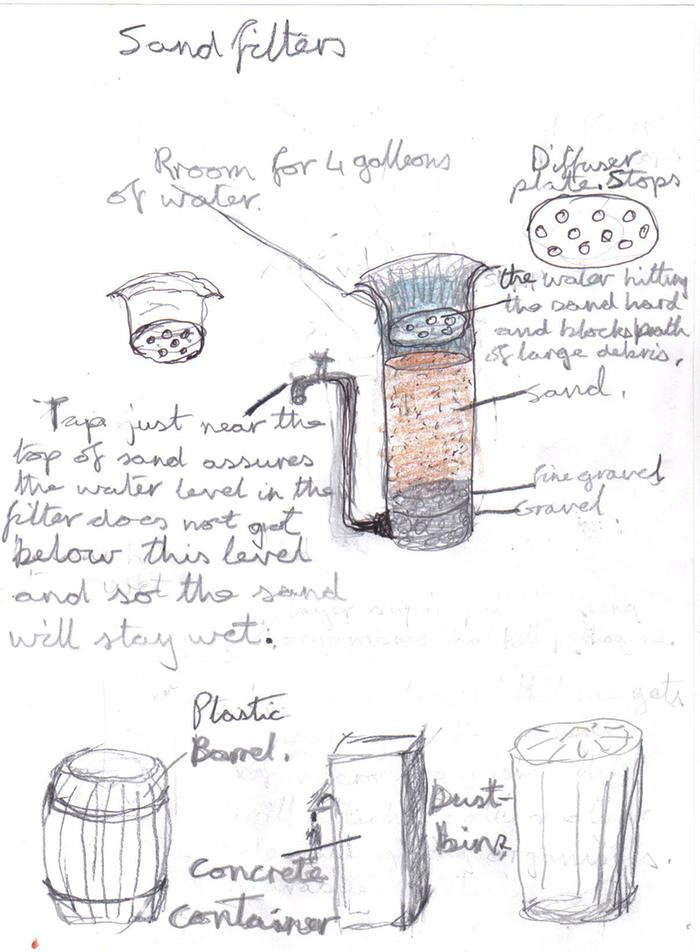 Sand filters
Rroom for 4 galleons
of water.
Diffuser
plate. Stops
the water hitting
the sand hard
and blocks path
of large debris.
sand.
Fine gravel
Gravel
Tap just near the
top of sand assures
the water level in the
filter does not get
below this level
and so the sand
will stay wet.
Plastic
Barrel.
Concrete
Container
Dust-
bins